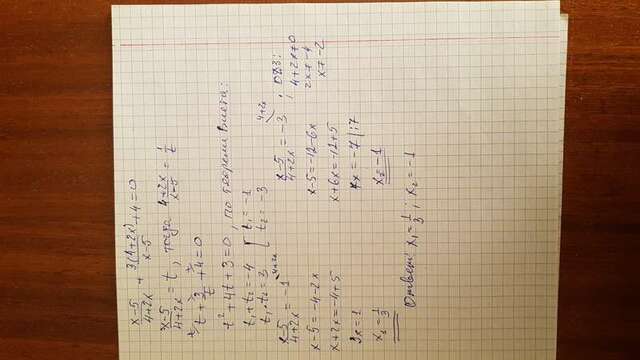 (x-5)/(4+2x) + 3(4+2x)/(x-5) + 4 = 0
(x-5)/(4+2x) = t, тогда (4+2x)/(x-5) = 1/t
t + 3/t + 4 = 0
t² + 4t + 3 = 0, по теореме Виета:
t₁ + t₂ = -4 [ t₁ = -1
t₁ · t₂ = 3 [ t₂ = -3
(x-5)/(4+2x) = -1 \4+2x
x-5 = -4-2x
x+2x = -4+5
3x = 1
x₁ = 1/3
(x-5)/(4+2x) = -3 \4+2x ;
x-5 = -12-6x
x+6x = -12+5
7x = -7 |:7
x₂ = -1
ОДЗ:
4+2x≠0
2x≠-4
x≠-2
Ответ: x₁ = 1/3 ; x₂ = -1